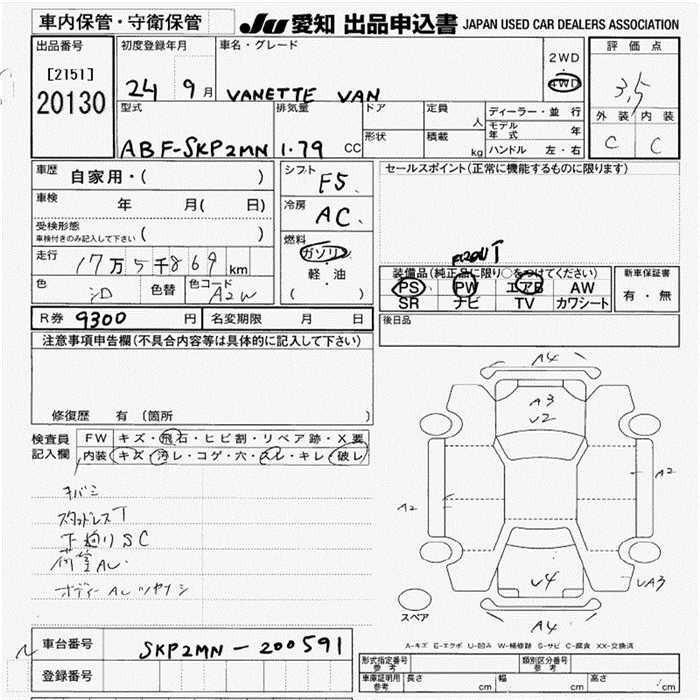 車内保管・守衛保管
JU 愛知 出品申込書 JAPAN USED CAR DEALERS ASSOCIATION
出品番号
[2151]
20130
初度登録年月
24 9月
車名・グレード
VANETTE VAN
2WD
・
4WD
評価点
3.5
外装 内装
C C
型式
ABF-SKP2MN
排気量
1.79 CC
ドア
定員
人
形状
積載
kg
ディーラー・並行
モデル年式 年
ハンドル 左・右
車歴
自家用・( )
車検
年 月( 日)
受検形態
車検付きのみ記入して下さい ( )
走行
17万5千869 km
色
色替
色コード
A2W
シフト
F5
冷房
AC
燃料
ガソリン
軽・油
( )
セールスポイント(正常に機能するものに限ります)
装備品(純正品に限り○をつけてください)
PS PW エアB AW
SR ナビ TV カワシート
新車保証書
有・無
後日品
R券 9300 円
名変期限 月 日
注意事項申告欄(不具合内容等は具体的に記入して下さい)
修復歴 有 (箇所 )
検査員
記入欄
FW キズ・飛石・ヒビ割・リペア跡・X要
内装 キズ・汚レ・コゲ・穴・スレ・キレ・破レ
キバミ
スタッドレスT
下廻りSC
荷室AU
A4
A3
U2
A2
A2
U4
UA3
A4
スペア
A-キズ E-エクボ U-凹み W-補修跡 S-サビ C-腐食 XX-交換済
車台番号
SKP2MN-200591
登録番号
形式指定番号
参考
類別区分番号
参考
車庫証明用
参考
長さ cm
幅 cm
高さ cm